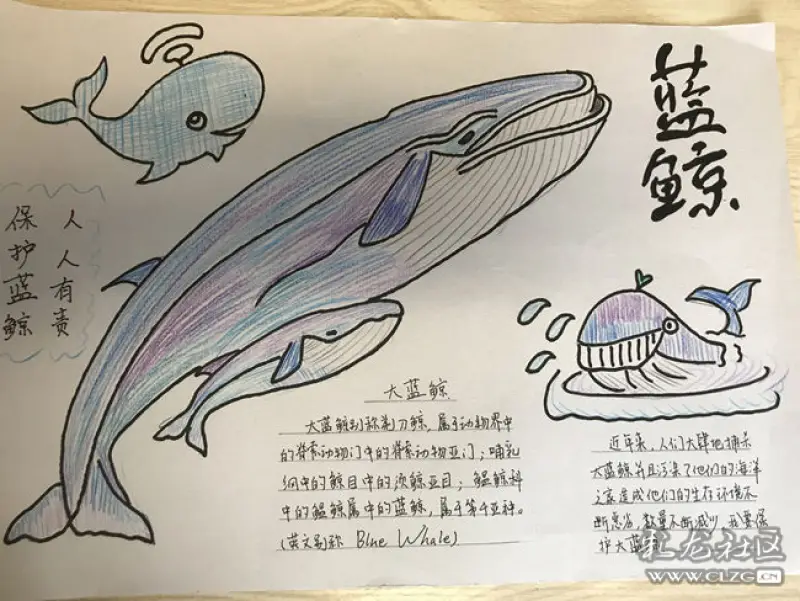 蓝鲸
保护蓝鲸
人人有责
大蓝鲸
大蓝鲸别称剃刀鲸，属于动物界中
的脊索动物门中的脊索动物亚门；哺乳
纲中的鲸目中的须鲸亚目；鳁鲸科
中的鳁鲸属中的蓝鲸，属于等亚种。
(英文别称 Blue Whale)
近年来，人们大肆地捕杀
大蓝鲸并且污染了他们的海洋
这家造成他们的生存环境不
断恶劣，数量不断减少，我要保
护大蓝鲸
化龙社区
WWW.CLZG.CN